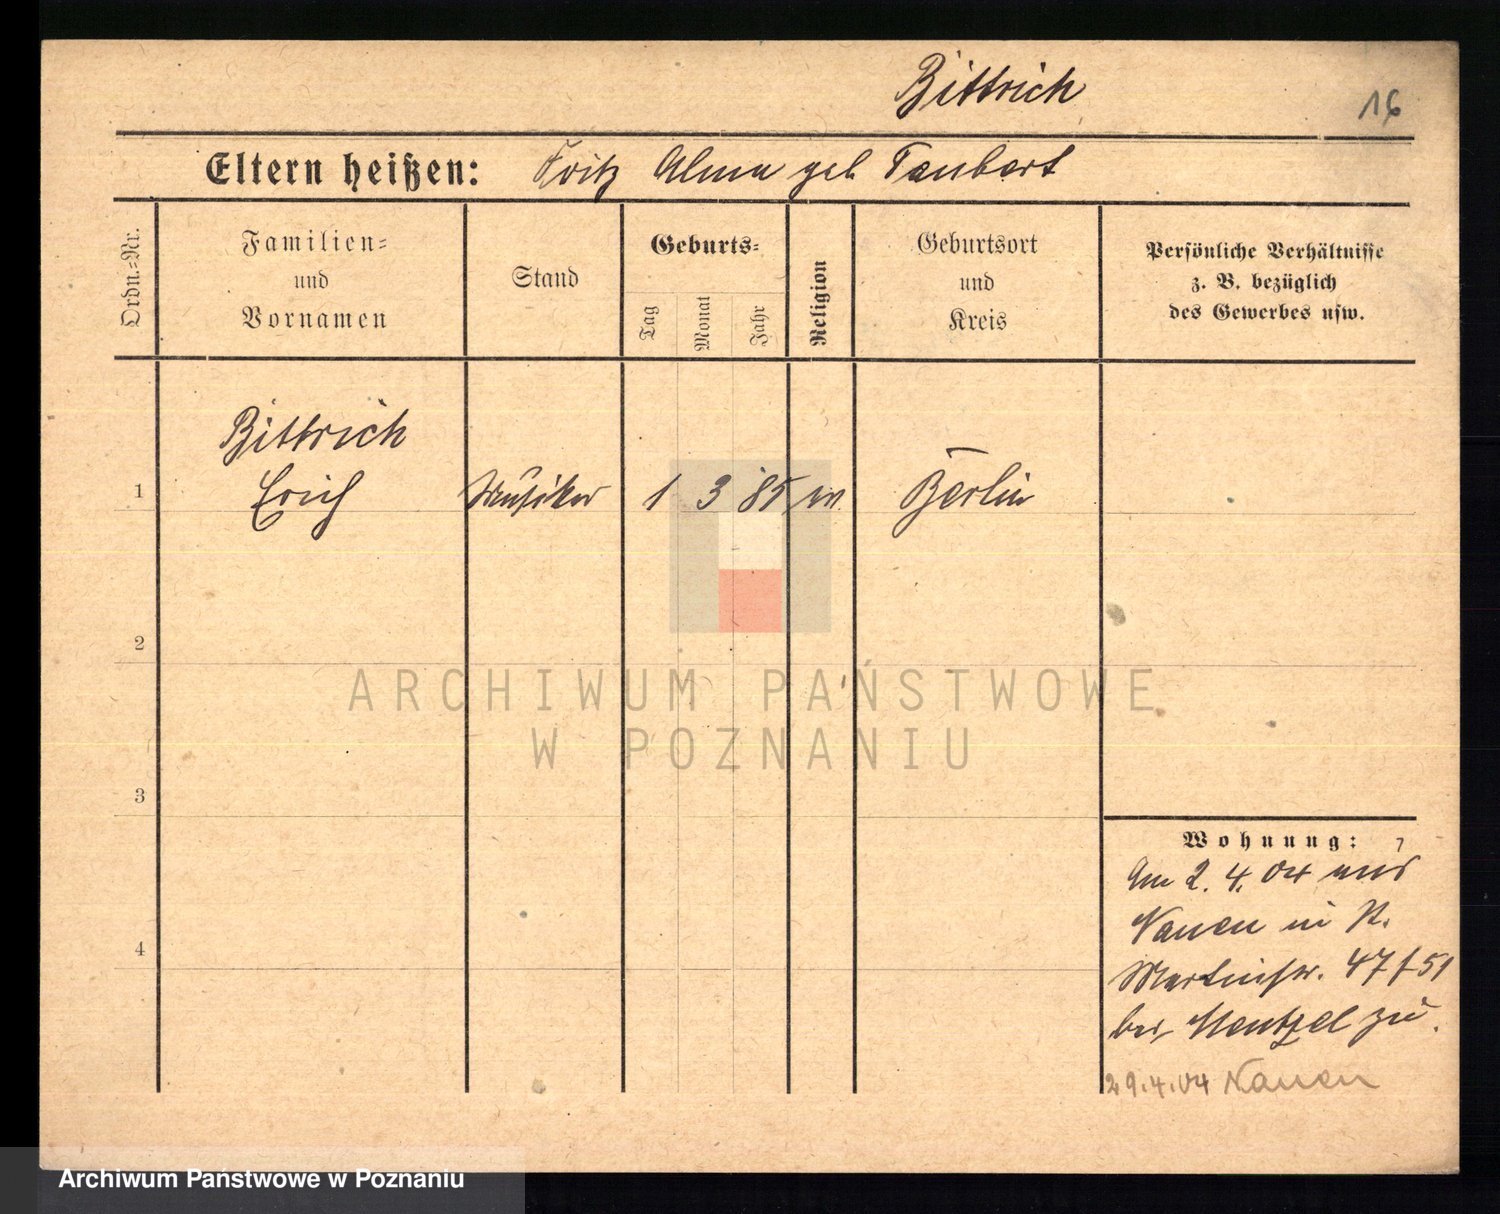 Bittrich
16
Eltern heißen: Fritz Alma geb Taubert
Ordn.-Nr.
Familien-
und
Vornamen
Stand
Geburts-
Tag
Monat
Jahr
Religion
Geburtsort
und
Kreis
Persönliche Verhältnisse
z. B. bezüglich
des Gewerbes usw.
Bittrich
1 Erich Musiker 1 3 85 Berlin
2
3
4
Wohnung:
Am 2. 4. 04 aus
Nauen in St.
Martinstr. 47/51
bei Mentzel zu.
29.4.04 Nauen
ARCHIWUM PAŃSTWOWE
W POZNANIU
Archiwum Państwowe w Poznaniu